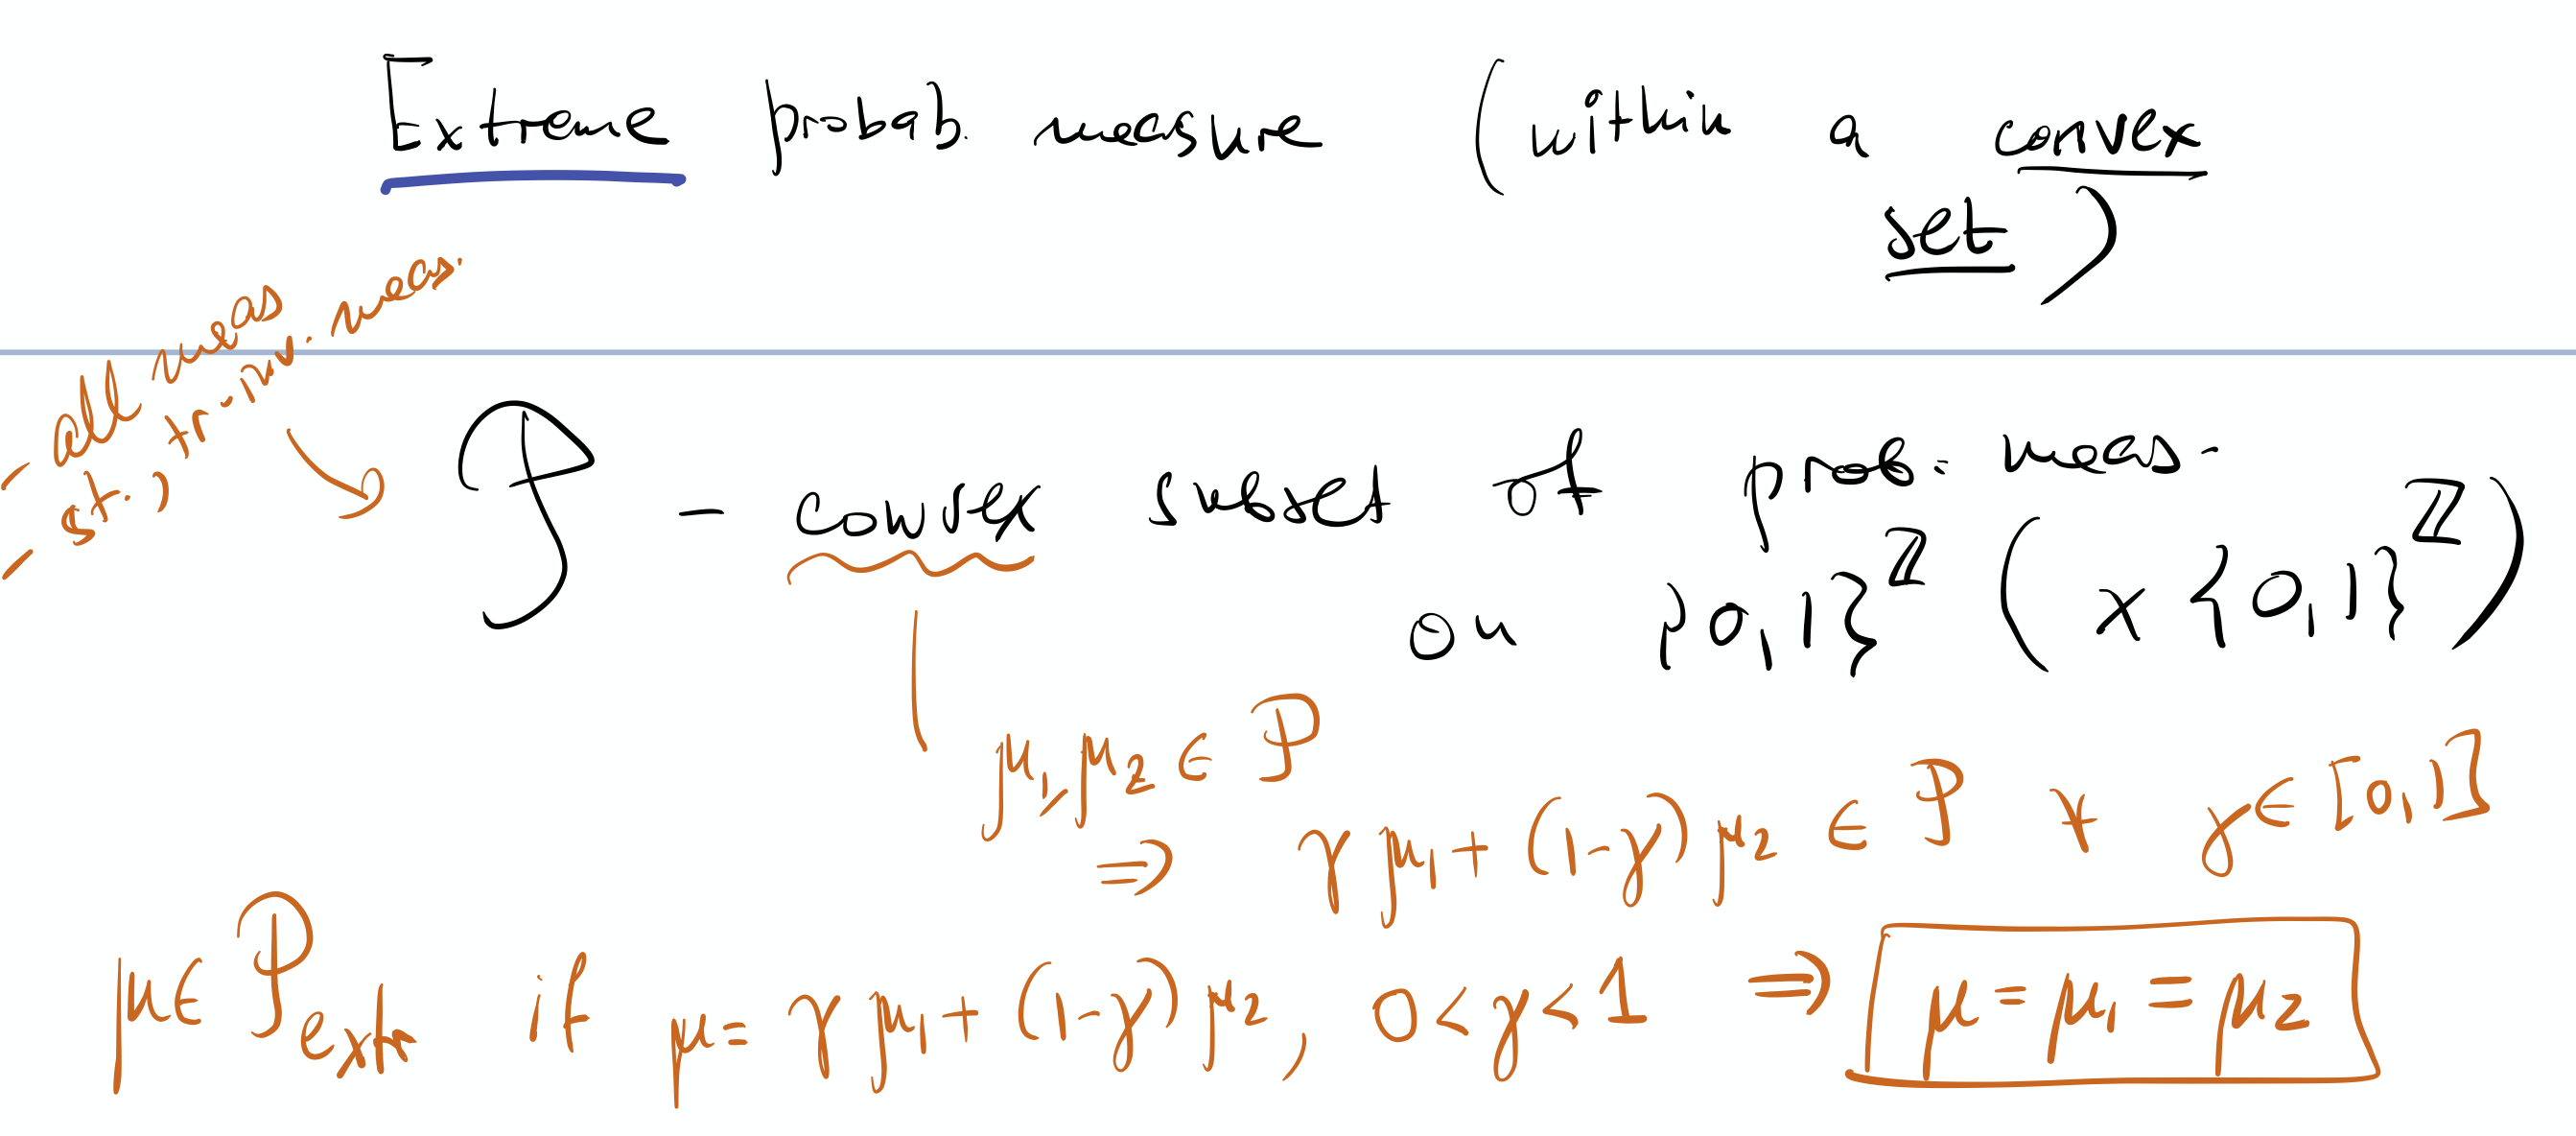 Extreme probab. measure (within a convex
set)
- all meas
- st., tr-inv. meas.
𝒫 - convex subset of prob. meas.
on {0,1}^ℤ (x {0,1}^ℤ)
μ₁, μ₂ ∈ 𝒫
⇒ γ μ₁ + (1-γ) μ₂ ∈ 𝒫 ∀ γ ∈ [0,1]
μ ∈ 𝒫_extr if μ = γ μ₁ + (1-γ) μ₂, 0 < γ < 1 ⇒ μ = μ₁ = μ₂